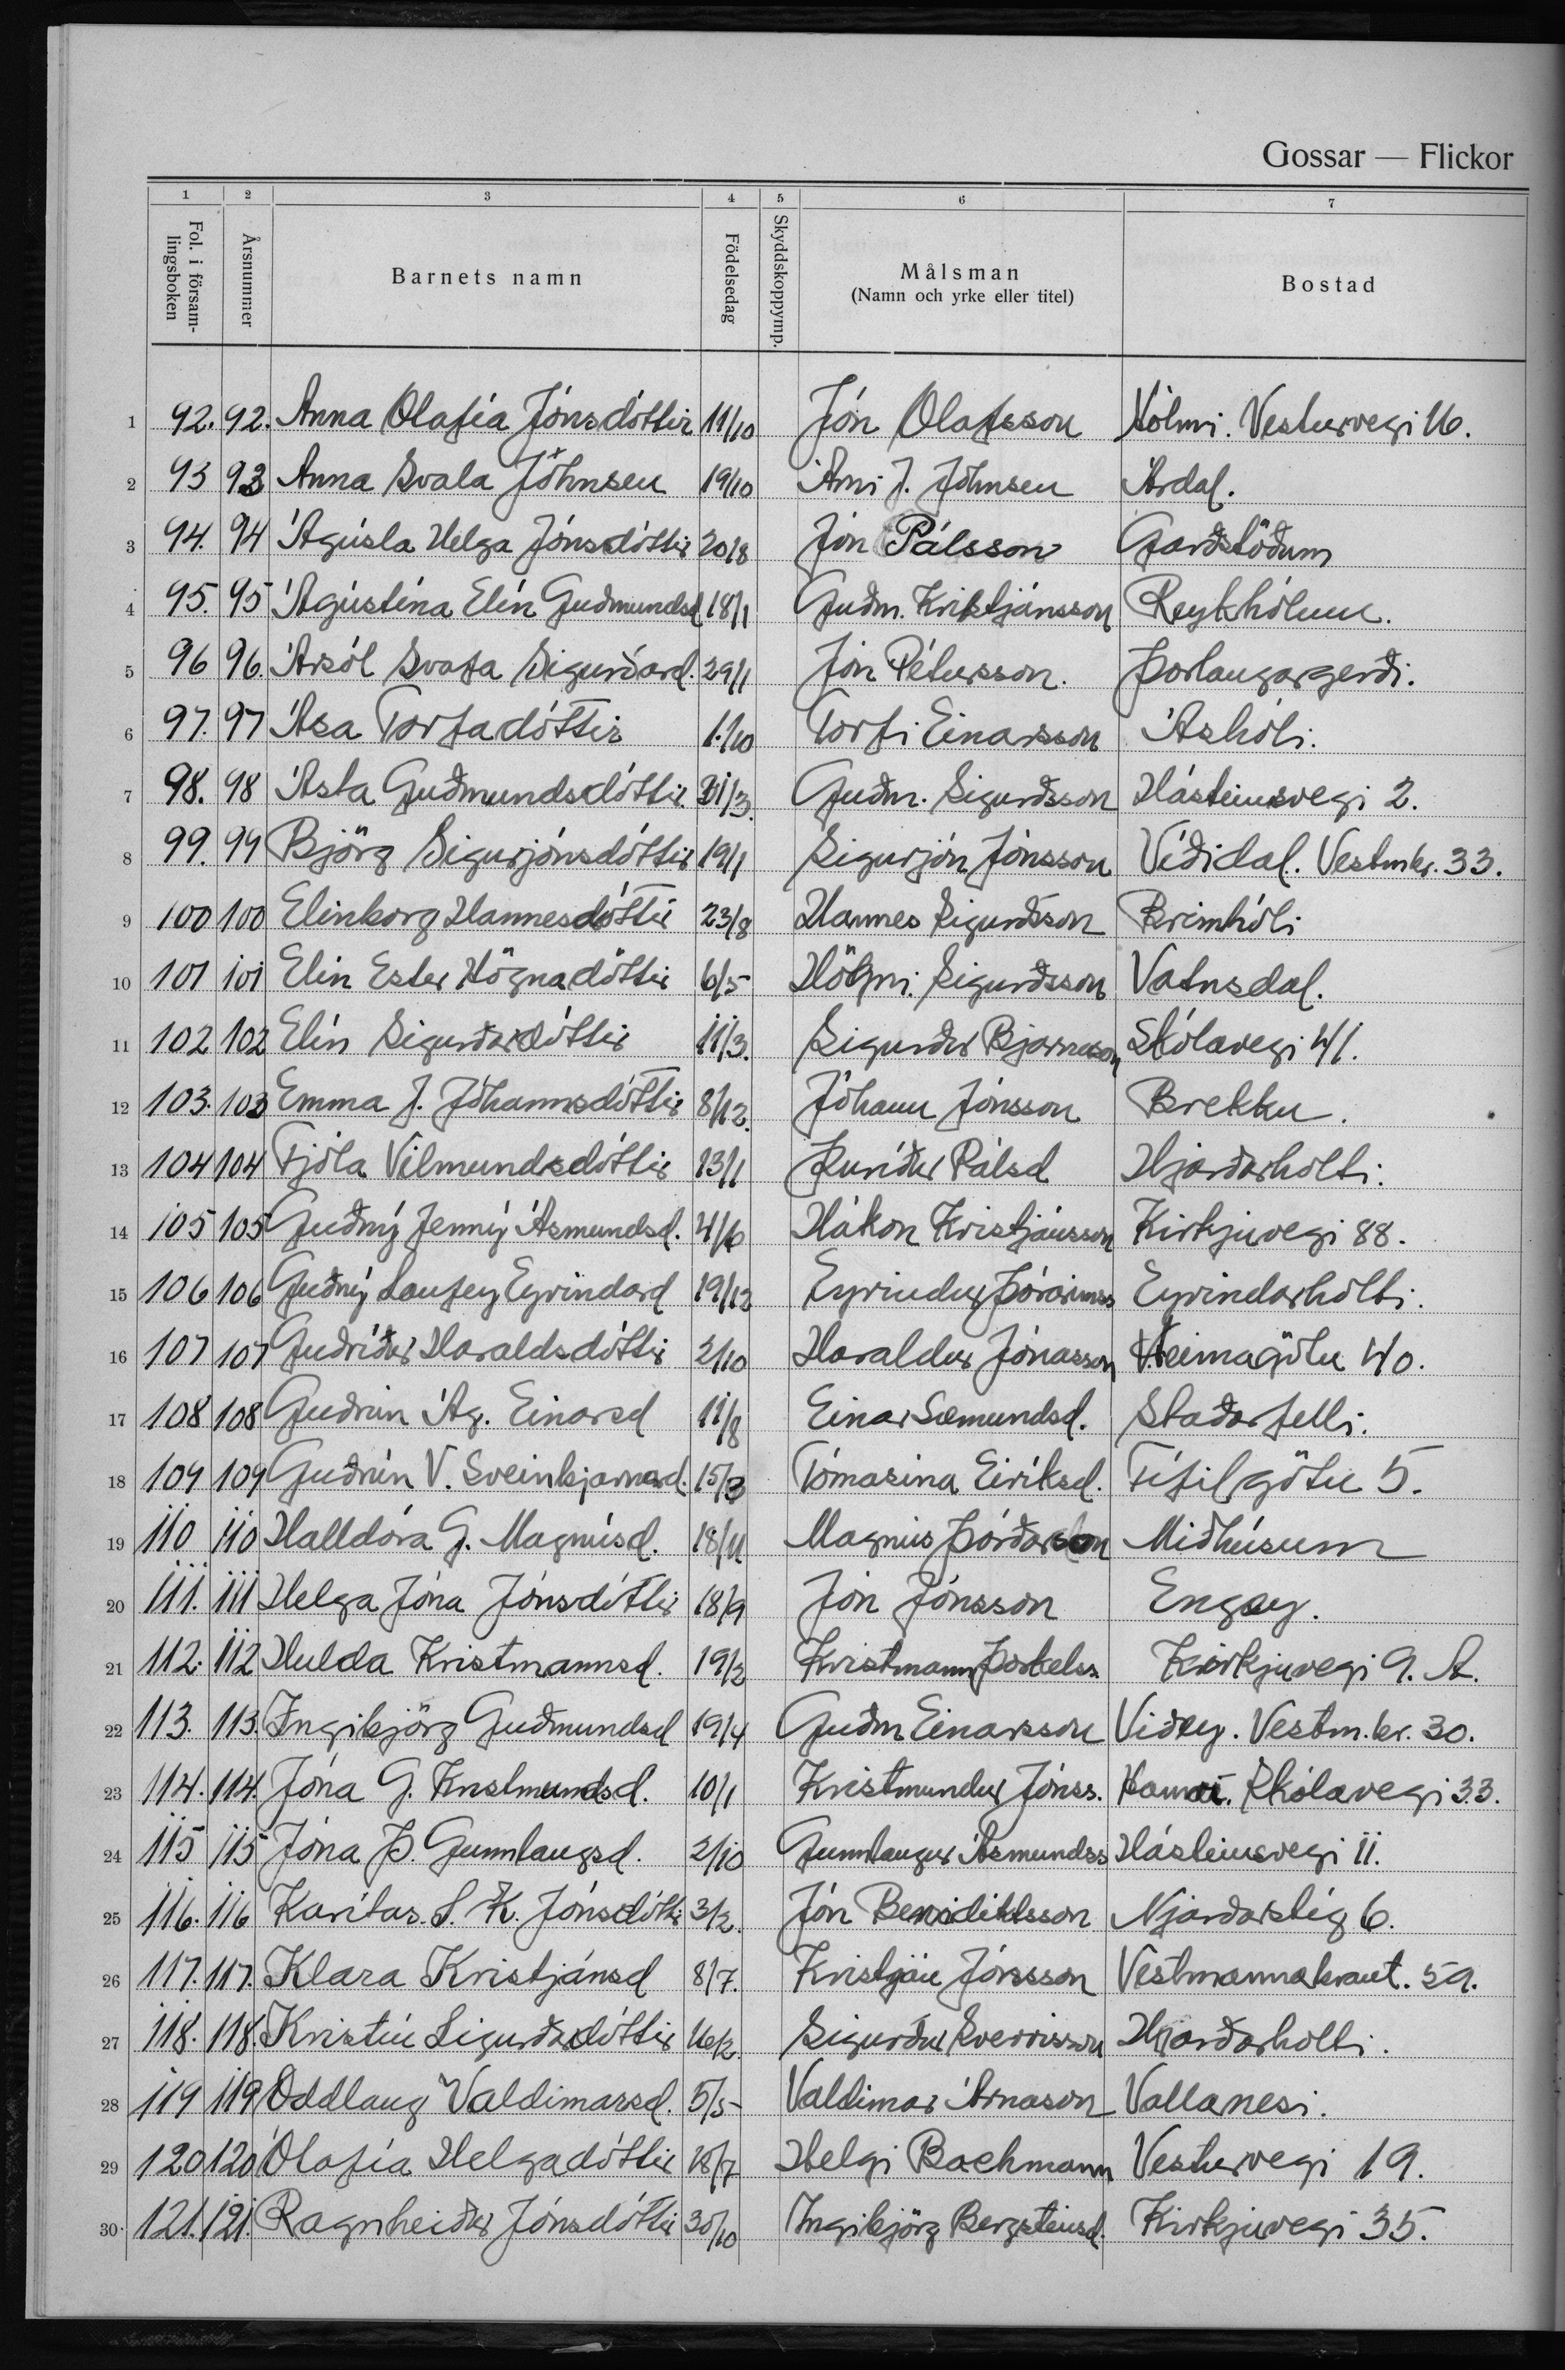 Gossar — Flickor
1 2 3 4 5 6 7
Fol. i försam-
lingsboken
Årsnummer
Barnets namn
Födelsedag
Skyddskoppymp.
Målsman
(Namn och yrke eller titel)
Bostad
1 92. 92. Anna Ólafía Jónsdóttir 11/10 Jón Ólafsson Hólmi. Vesturvegi 16.
2 93 93 Anna Svala Jóhnsen 19/10 Árni J. Jóhnsen Árdal.
3 94. 94 Ágústa Helga Jónsdóttir 20/8 Jón Pálsson Garðstöðum
4 95. 95 Ágústína Elín Guðmundsd 18/1 Guðm. Kristjánsson Reykhólum.
5 96 96. Ársól Svafa Sigurðard. 29/1 Jón Pétursson. Þorlaugargerði.
6 97. 97 Ása Torfadóttir 1./10 Torfi Einarsson Áshóli.
7 98. 98 Ásta Guðmundsdóttir 31/3. Guðm. Sigurðsson Hásteinsvegi 2.
8 99. 99 Björg Sigurjónsdóttir 19/1 Sigurjón Jónsson Víðidal. Vestmbr. 33.
9 100 100 Elinborg Hannesdóttir 23/8 Hannes Sigurðsson Brimhóli
10 101 101 Elín Ester Högnadóttir 6/5 Högni Sigurðsson Vatnsdal.
11 102 102 Elín Sigurðardóttir 11/3. Sigurður Bjarnason Skólavegi 41.
12 103. 103 Emma J. Jóhannsdóttir 8/12. Jóhann Jónsson Brekku.
13 104 104 Fjóla Vilmundsdóttir 13/1 Þuríður Pálsd Hjarðarholti.
14 105 105 Guðný Jenný Ásmundsd. 4/6 Hákon Kristjánsson Kirkjuvegi 88.
15 106 106 Guðný Laufey Eyvindard 19/12 Eyvindur Þórarinss Eyvindarholti.
16 107 107 Guðríður Haraldsdóttir 2/10 Haraldur Jónasson Heimagötu 40.
17 108 108 Guðrún Ág. Einarsd 11/8 Einar Sæmundsd. Staðarfelli.
18 109 109 Guðrún V. Sveinbjarnard. 15/3 Tómasína Eiríksd. Fífilgötu 5.
19 110 110 Halldóra G. Magnúsd. 18/11 Magnús Þórðarson Miðhúsum
20 111. 111 Helga Jóna Jónsdóttir 18/9 Jón Jónsson Engey.
21 112. 112 Hulda Kristmannsd. 19/2 Kristmann Þorkelss. Kirkjuvegi 9. A.
22 113. 113. Ingibjörg Guðmundsd 19/4 Guðm Einarsson Viðey. Vestm.br. 30.
23 114. 114. Jóna G. Kristmundsd. 10/1 Kristmundur Jónss. Hamri. Skólavegi 33.
24 115 115 Jóna Þ. Gunnlaugsd. 2/10 Gunnlaugur Ásmundss Hásteinsvegi 11.
25 116. 116 Karítas. S. K. Jónsdóttir 3/2. Jón Benidiktsson Njarðarstíg 6.
26 117. 117. Klara Kristjánsd 8/7. Kristján Jónsson Vestmannabraut. 59.
27 118. 118. Kristín Sigurðardóttir 16/2. Sigurður Sverrisson Hjarðarholti.
28 119 119 Oddlaug Valdimarsd. 5/5 Valdimar Árnason Vallanesi.
29 120 120 Ólafía Helgadóttir 18/7 Helgi Bachmann Vesturvegi 19.
30 121. 121. Ragnheiður Jónsdóttir 30/10 Ingibjörg Bergsteinsd. Kirkjuvegi 35.